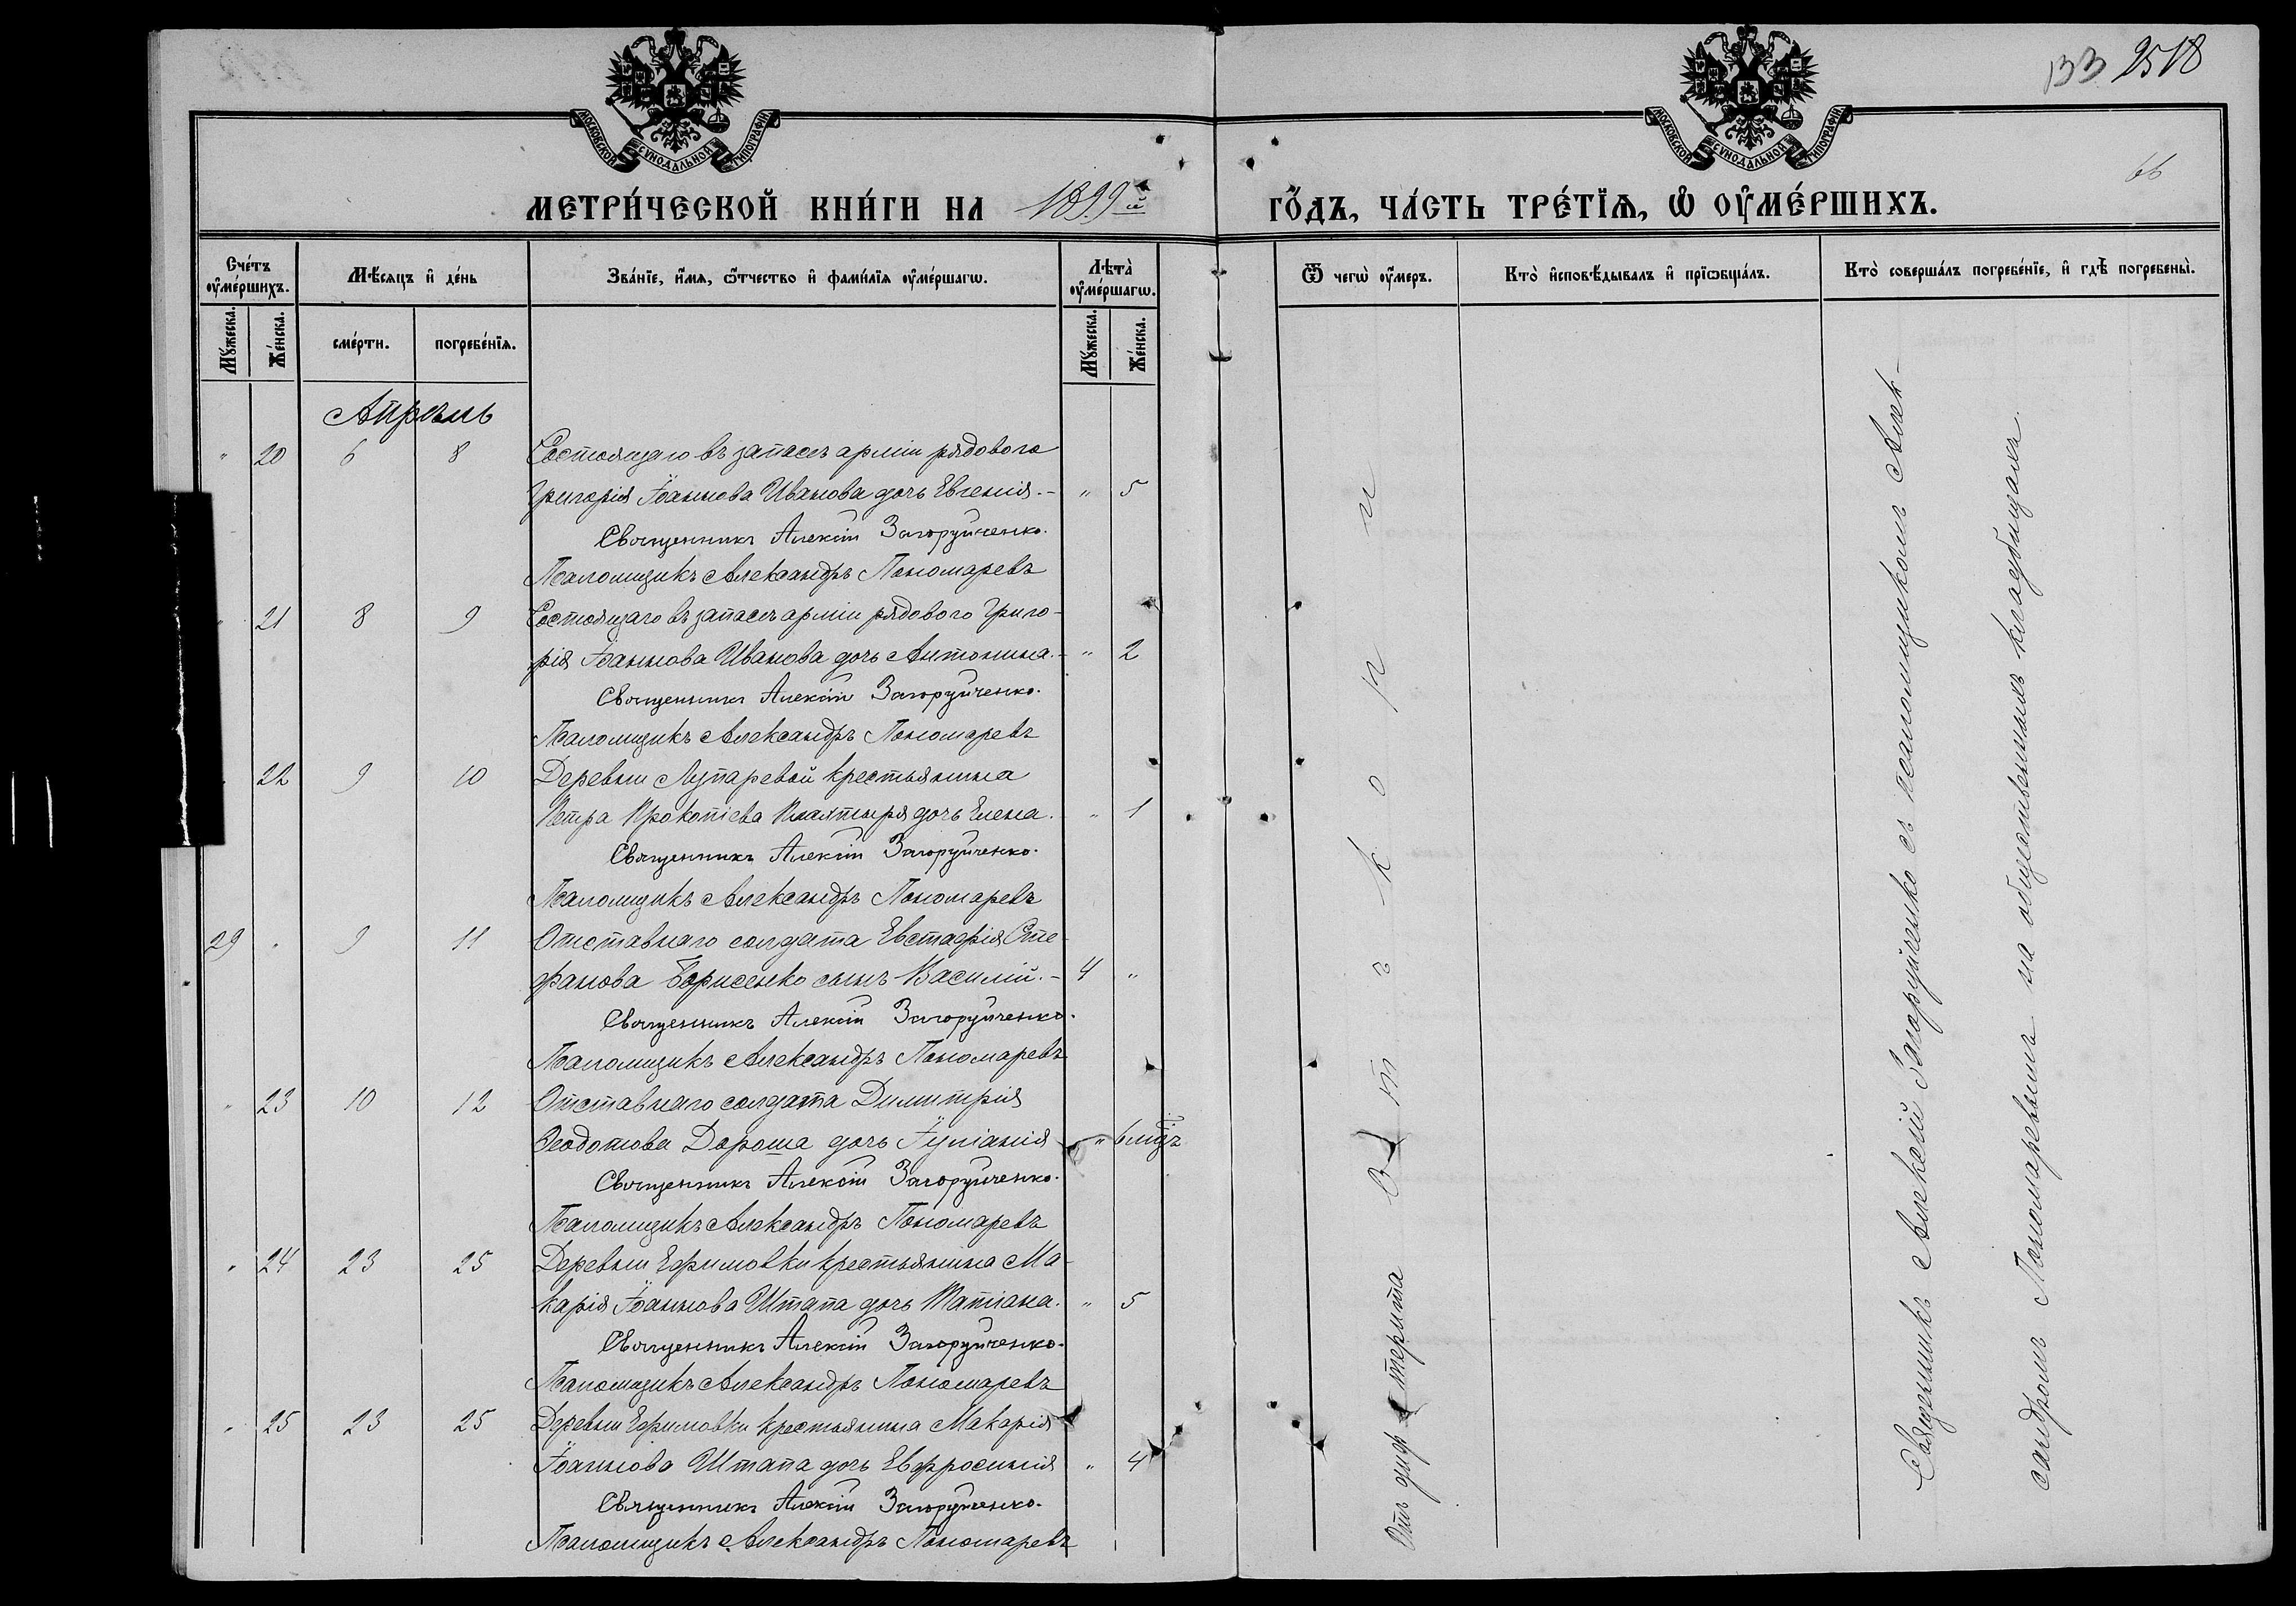 133 2518
66
МОСКОВСКОЙ СѴНОДАЛЬНОЙ ТИПОГРАФІИ
МОСКОВСКОЙ СѴНОДАЛЬНОЙ ТИПОГРАФІИ
МЕТРИ́ЧЕСКОЙ КНИ́ГИ НА 1899й
ГО́ДЪ, ЧА́СТЬ ТРЕ́ТЇѦ, Ѽ ОУ҆МЕ́РШИХЪ.
Сче́тъ оу҆ме́ршихъ.
Мꙋ́жеска.
Же́нска.
Мѣ́сяцъ и҆ де́нь
сме́рти.
погребе́нїѧ.
Зва́нїе, и҆́мѧ, ѻ҆́тчество и҆ фами́лїѧ оу҆ме́ршагѡ.
Лѣта̀ оу҆ме́ршагѡ.
Мꙋ́жеска.
Же́нска.
Ѿ чегѡ̀ оу҆́меръ.
Кто̀ и҆сповѣ́дывалъ и҆ прїѡбща́лъ.
Кто̀ соверша́лъ погребе́нїе, и҆ гдѣ̀ погребены̀.
Апрѣль
" 20 6 8 Состоящаго въ запасѣ арміи рядового
Григорія Іоаннова Иванова дочь Евгенія. - " 5
Священникъ Алексій Загоруйченко.
Псаломщикъ Александръ Пономаревъ
" 21 8 9 Состоящаго въ запасѣ арміи рядового Григо-
рія Іоаннова Иванова дочь Антонина. - " 2
Священникъ Алексій Загоруйченко.
Псаломщикъ Александръ Пономаревъ
22 9 10 Деревни Лупаревой крестьянина
Петра Прокопіева дочь Елена. " 1
Священникъ Алексій Загоруйченко.
Псаломщикъ Александръ Пономаревъ
29 " 9 11 Отставнаго солдата Евстафія Сте-
фанова Борисенко сынъ Василій. - 4 "
Священникъ Алексій Загоруйченко.
Псаломщикъ Александръ Пономаревъ
" 23 10 12 Отставнаго солдата Димитрія
Ѳеодотова Дороша дочь Іуліанія " 6 мѣц
Священникъ Алексій Загоруйченко.
Псаломщикъ Александръ Пономаревъ
" 24 23 25 Деревни Ефимовки крестьянина Ма-
карія Іоаннова Штапа дочь Татіана. " 5
Священникъ Алексій Загоруйченко.
Псаломщикъ Александръ Пономаревъ
" 25 23 25 Деревни Ефимовки крестьянина Макарія
Іоаннова Штапа дочь Евфросинія " 4
Священникъ Алексій Загоруйченко.
Псаломщикъ Александръ Пономаревъ
Отъ кори
Отъ дифтерита
Священникъ Алексій Загоруйченко съ псаломщикомъ Алек-
сандромъ Пономаревымъ на общественномъ кладбищѣ.